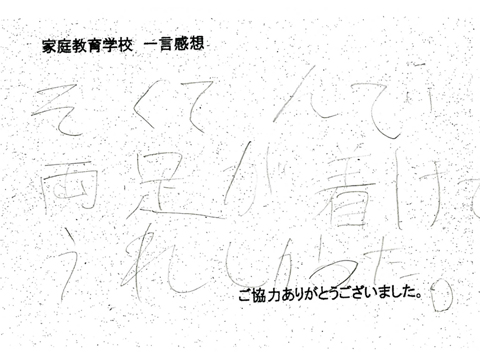 家庭教育学校　一言感想
そくてんで
両足が着けて
うれしかった。
ご協力ありがとうございました。